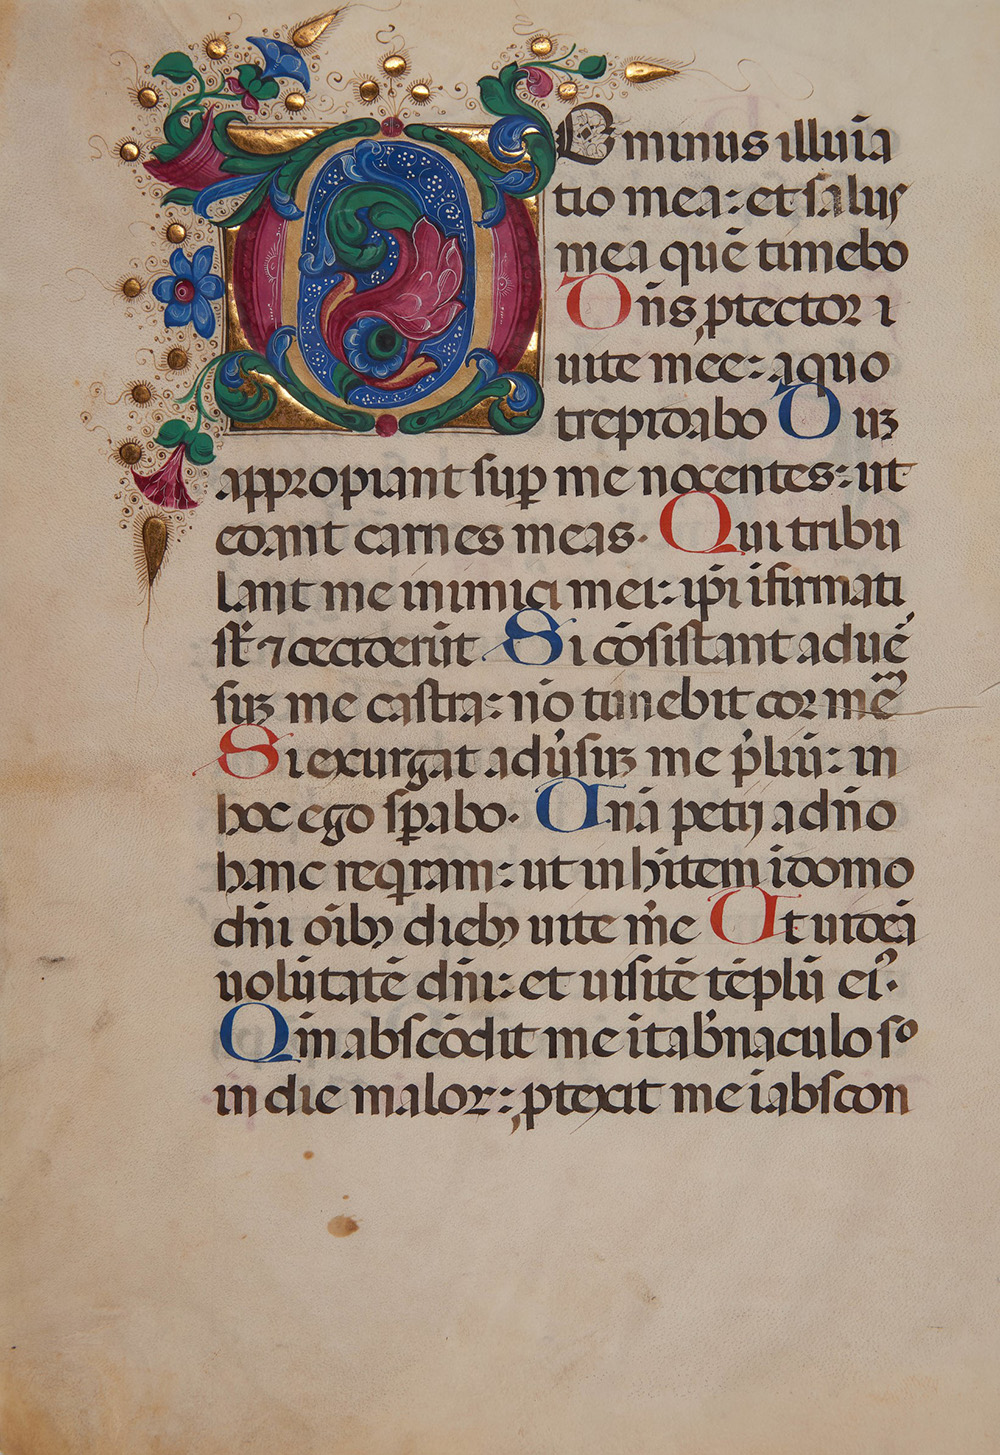 DOminus illuīa
tio mea: et salus
mea quē timebo
Dn̄s ꝓtector i
uite mee: a quo
trepidabo Duꝫ
appropiant suꝑ me nocentes: ut
edant carnes meas. Qui tribu
lant me inimici mei: ip̄i īfirmati
st̄ ⁊ ceciderūt Si cōsistant aduē
suꝫ me castra: nō timebit cor mēū
Si exurgat adu̓suꝫ me p̓liū: in
hoc ego sꝑabo. Unā petij a dn̄o
hanc reqͥram: ut inhītem i domo
dn̄i oīb9 dieb9 uite m̄e Ut uideā
uolūtatē dn̄i: et uisitē tēplū ei9.
Qm̄ abscōdit me i tab̓naculo sº
in die malor: ꝓtexit me i abscon